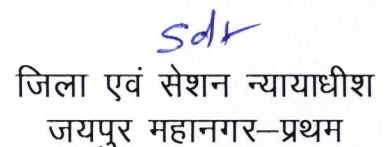 Sdr
जिला एवं सेशन न्यायाधीश
जयपुर महानगर–प्रथम